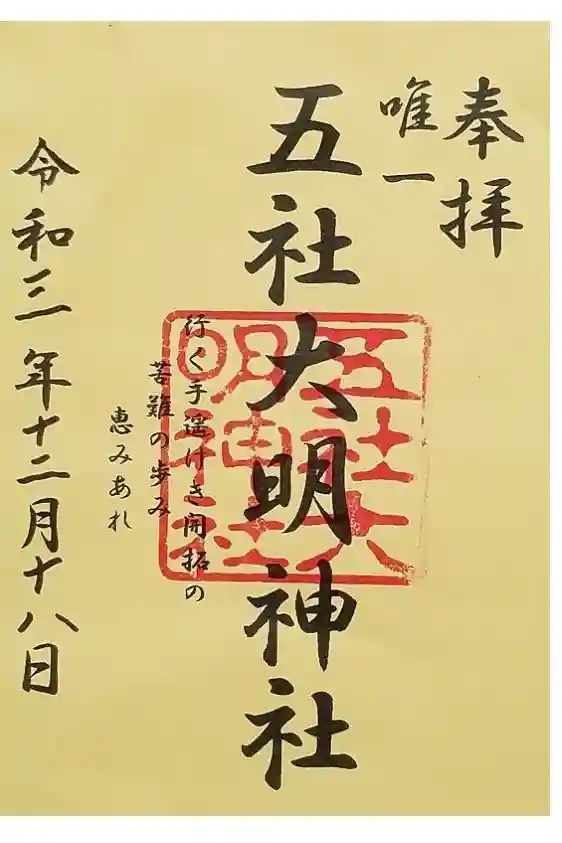 奉拝
唯一
五社大明神社
五社大
明神社
行く手遥けき開拓の
苦難の歩み
恵みあれ
令和三年十二月十八日